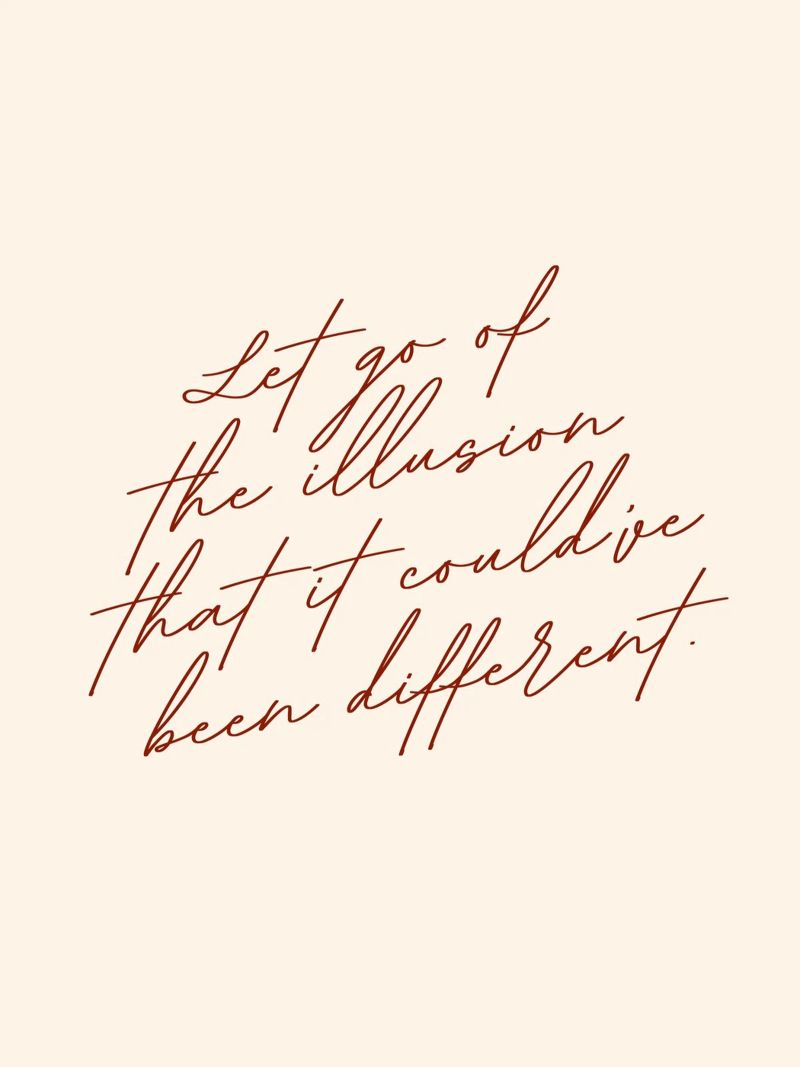 Let go of
the illusion
that it could've
been different.